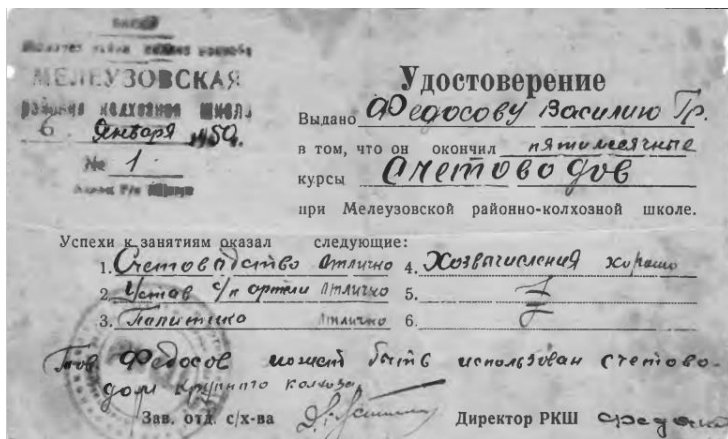 МЕЛЕУЗОВСКАЯ
колхозная школа
6 Января 1950.
№ 1.
Удостоверение
Выдано Федосову Василию Гр.
в том, что он окончил пятимесячные
курсы Счетоводов
при Мелеузовской районно-колхозной школе.
Успехи к занятиям оказал следующие:
1. Счетоводство Отлично 4. Хозвычисления хорошо
2. Устав с/х артели Отлично 5.
3. Палитико Отлично 6.
Тов. Федосов может быть использован счетово-
дом крупного колхоза
Зав. отд. с/х-ва Директор РКШ